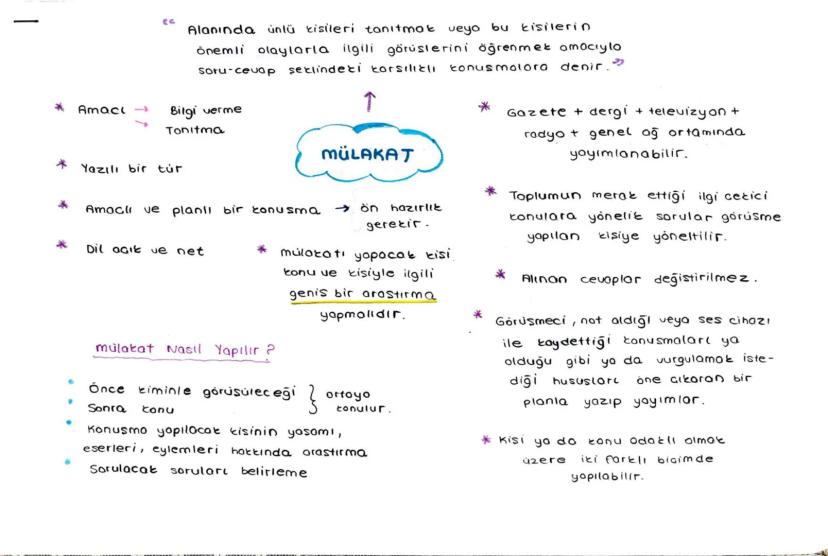 “ Alanında ünlü kişileri tanıtmak veya bu kişilerin
önemli olaylarla ilgili görüşlerini öğrenmek amacıyla
soru-cevap şeklindeki karşılıklı konuşmalara denir. ”
MÜLAKAT
* Amacı → Bilgi verme
→ Tanıtma
* Yazılı bir tür
* Amaçlı ve planlı bir konuşma → ön hazırlık
gerekir.
* Dil açık ve net
* mülakatı yapacak kişi
konu ve kişiyle ilgili
geniş bir araştırma
yapmalıdır.
mülakat Nasıl Yapılır?
• Önce kiminle görüşüleceği } ortaya
• Sonra konu konulur.
• Konuşma yapılacak kişinin yaşamı,
eserleri, eylemleri hakkında araştırma
• Sorulacak soruları belirleme
* Gazete + dergi + televizyon +
radyo + genel ağ ortamında
yayımlanabilir.
* Toplumun merak ettiği ilgi çekici
konulara yönelik sorular görüşme
yapılan kişiye yöneltilir.
* Alınan cevaplar değiştirilmez.
* Görüşmeci, not aldığı veya ses cihazı
ile kaydettiği konuşmaları ya
olduğu gibi ya da vurgulamak iste-
diği hususları öne çıkaran bir
planla yazıp yayımlar.
* Kişi ya da konu odaklı olmak
üzere iki farklı biçimde
yapılabilir.